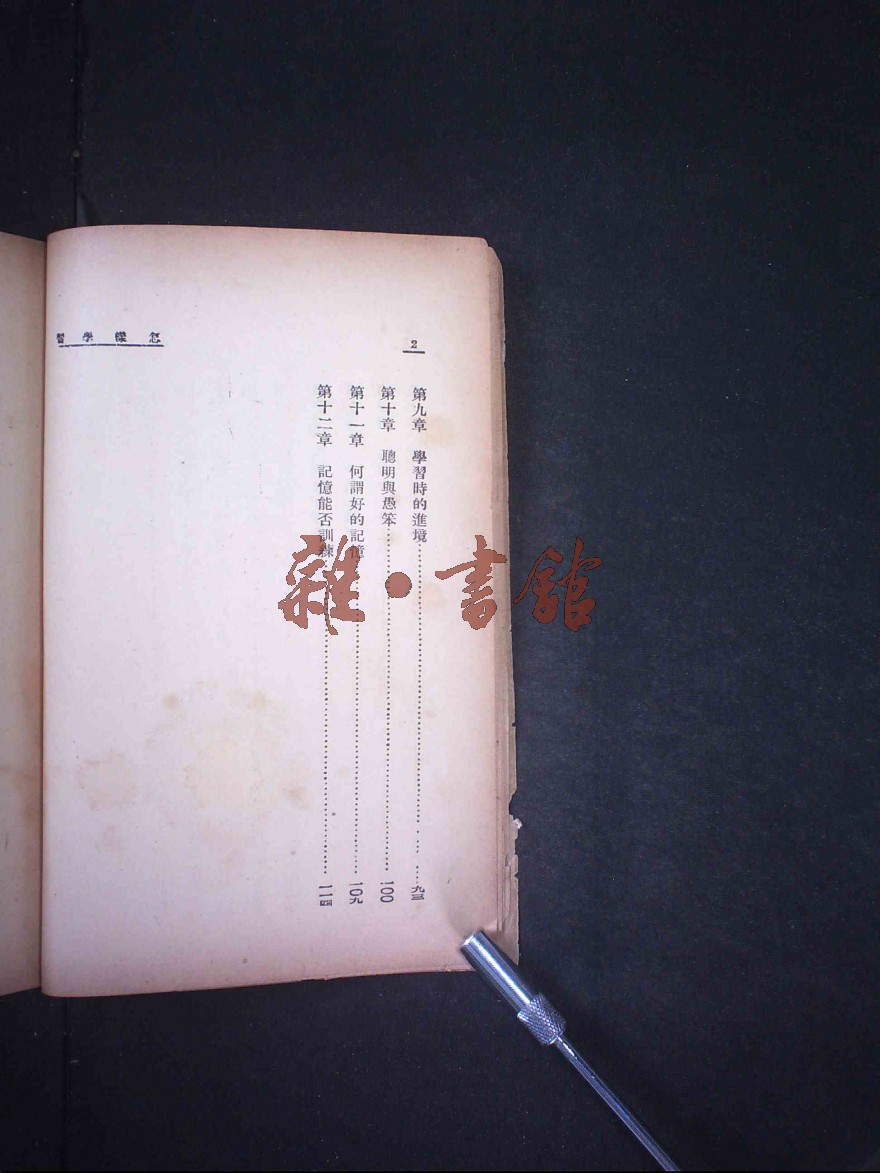 2
怎樣學習
第九章 學習時的進境……九三
第十章 聰明與愚笨……一〇〇
第十一章 何謂好的記憶……一〇九
第十二章 記憶能否訓練……一一四
雜•書館